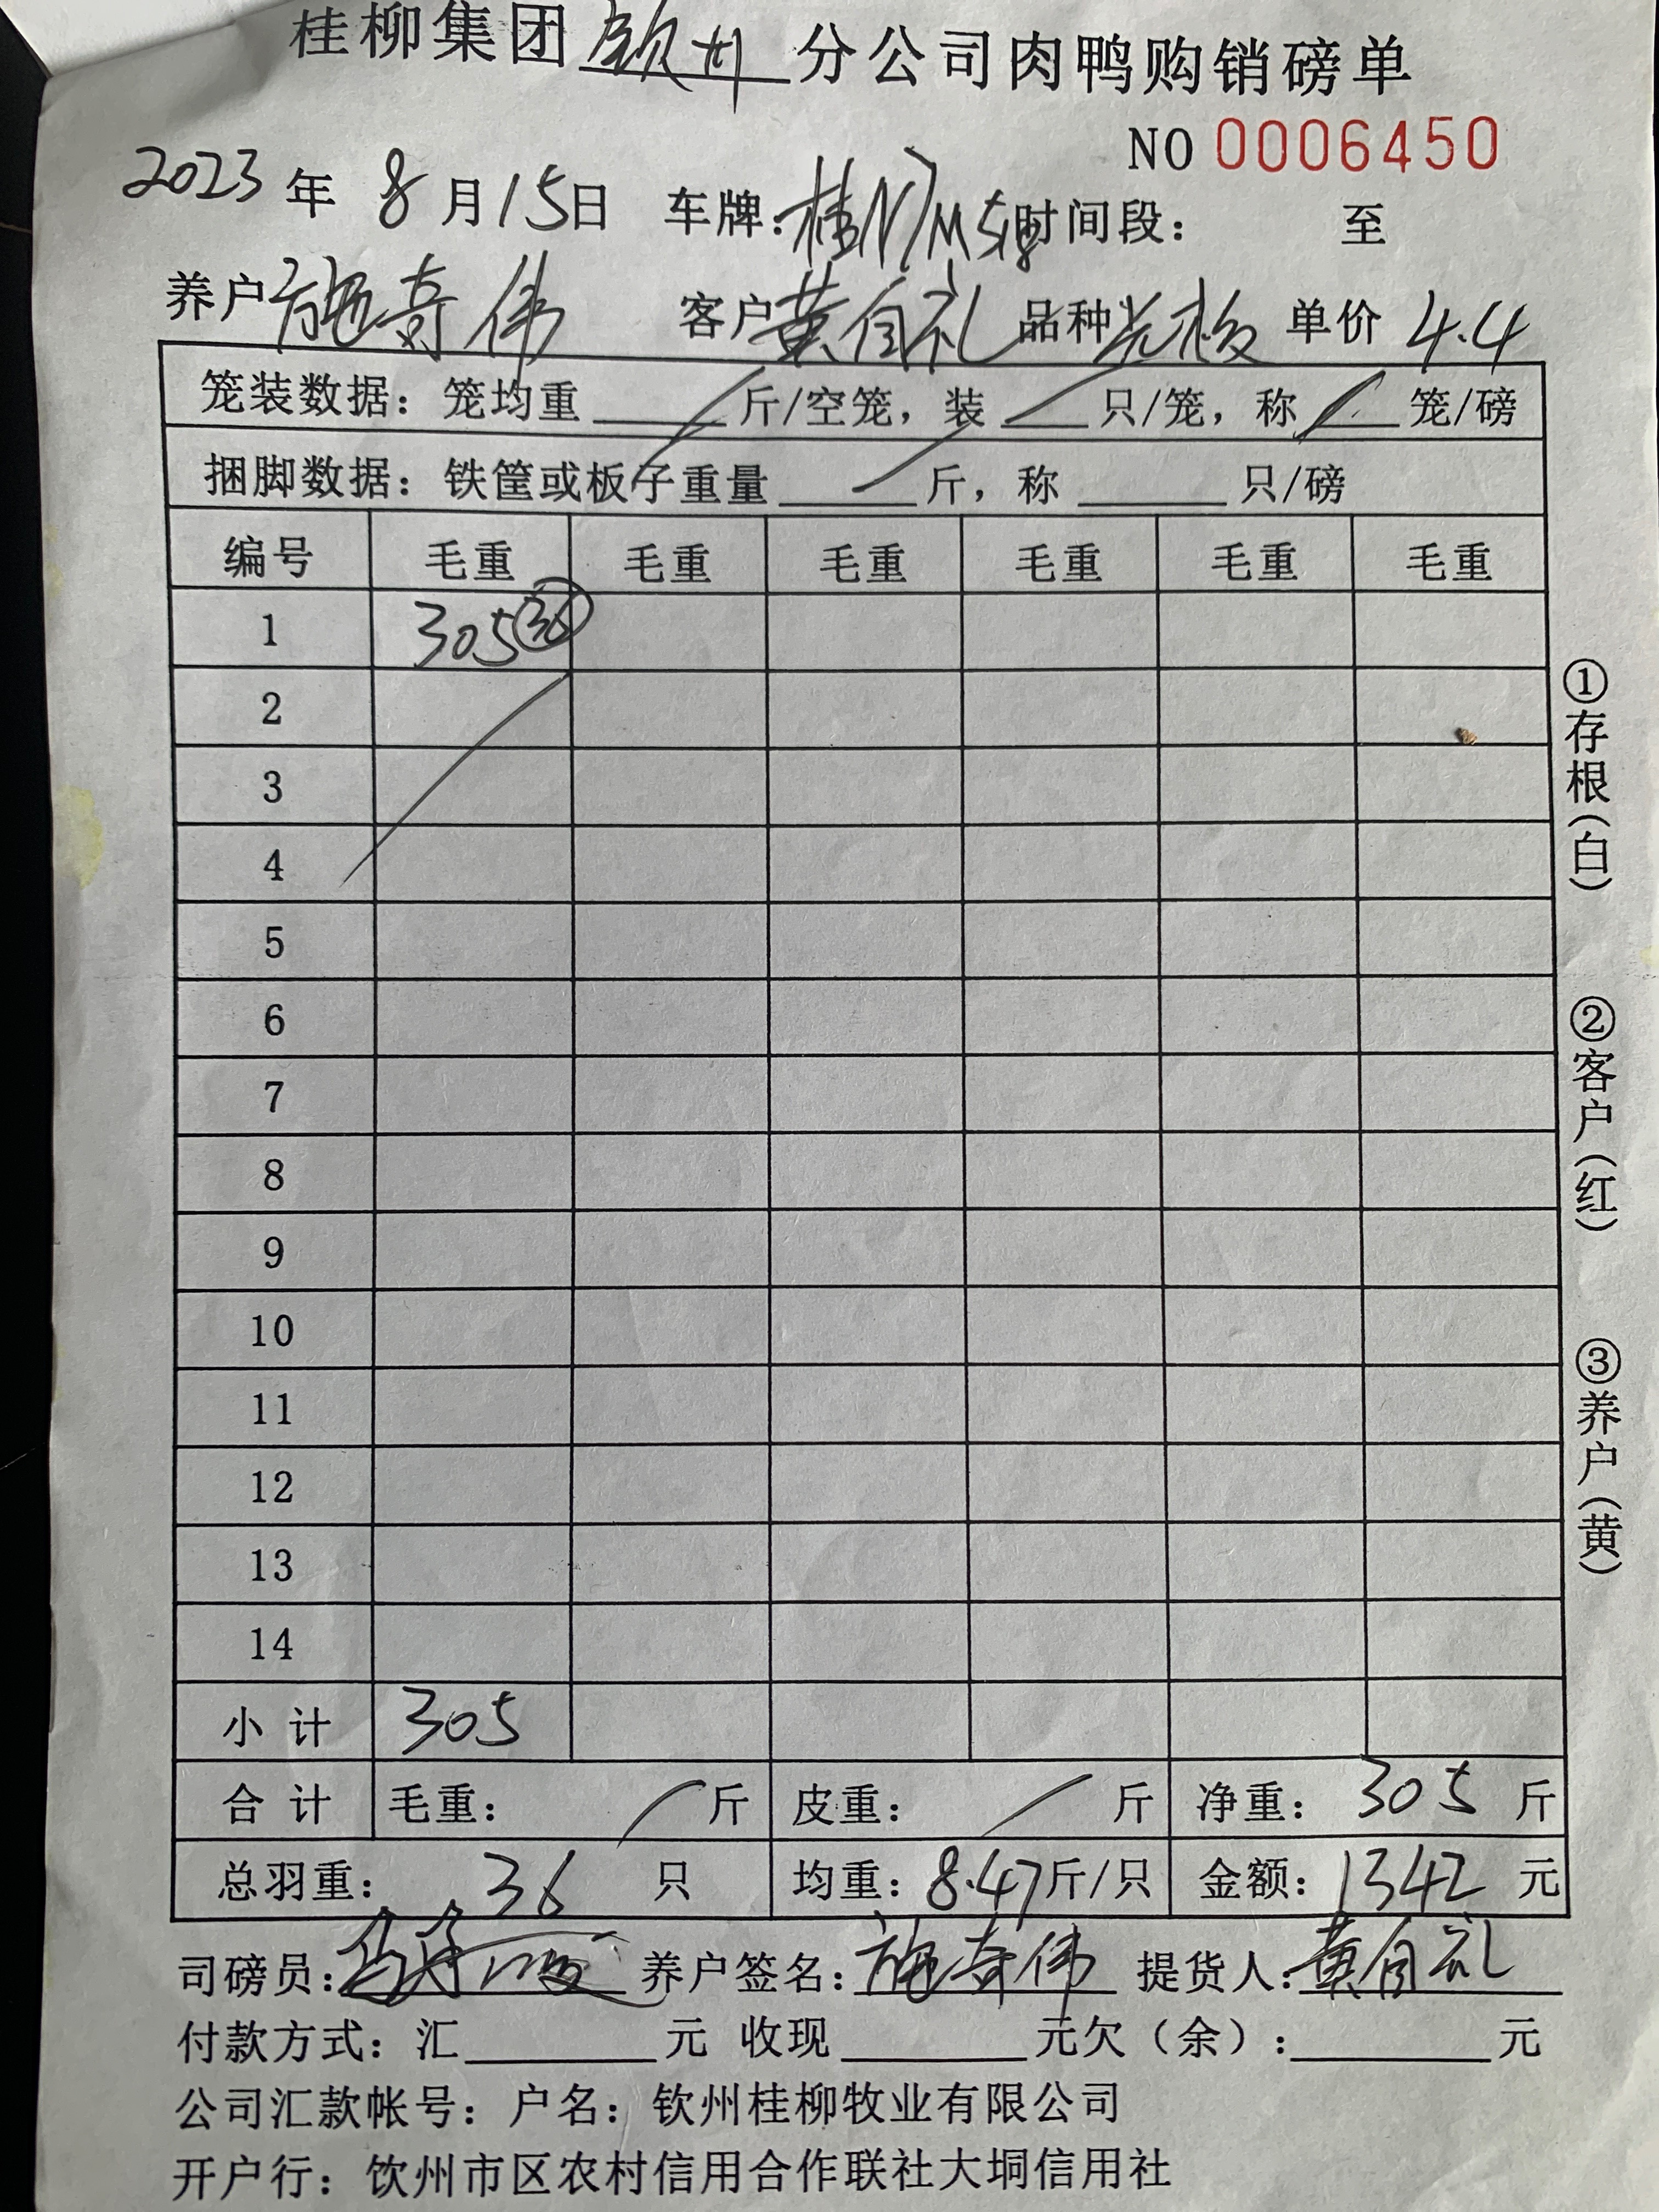 桂柳集团钦州分公司肉鸭购销磅单
NO 0006450
2023年 8月15日 车牌: 时间段: 至
养户 施奇伟 客户 黄自礼 品种 单价 4.4
笼装数据: 笼均重 斤/空笼, 装 只/笼, 称 笼/磅
捆脚数据: 铁筐或板子重量 斤, 称 只/磅
编号 毛重 毛重 毛重 毛重 毛重 毛重
1 305 36
2
3
4
5
6
7
8
9
10
11
12
13
14
小计 305
合计 毛重: 斤 皮重: 斤 净重: 305 斤
总羽重: 36 只 均重: 8.47斤/只 金额: 1342 元
司磅员: 养户签名: 施奇伟 提货人: 黄自礼
付款方式: 汇 元 收现 元欠(余): 元
公司汇款帐号: 户名: 钦州桂柳牧业有限公司
开户行: 饮州市区农村信用合作联社大垌信用社
①存根(白)
②客户(红)
③养户(黄)